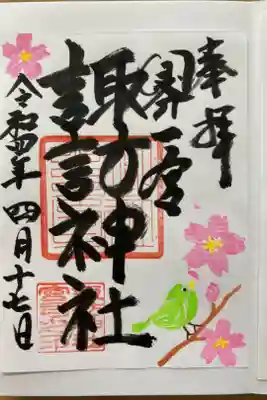 奉拝
諏訪神社
令和四年 四月十七日